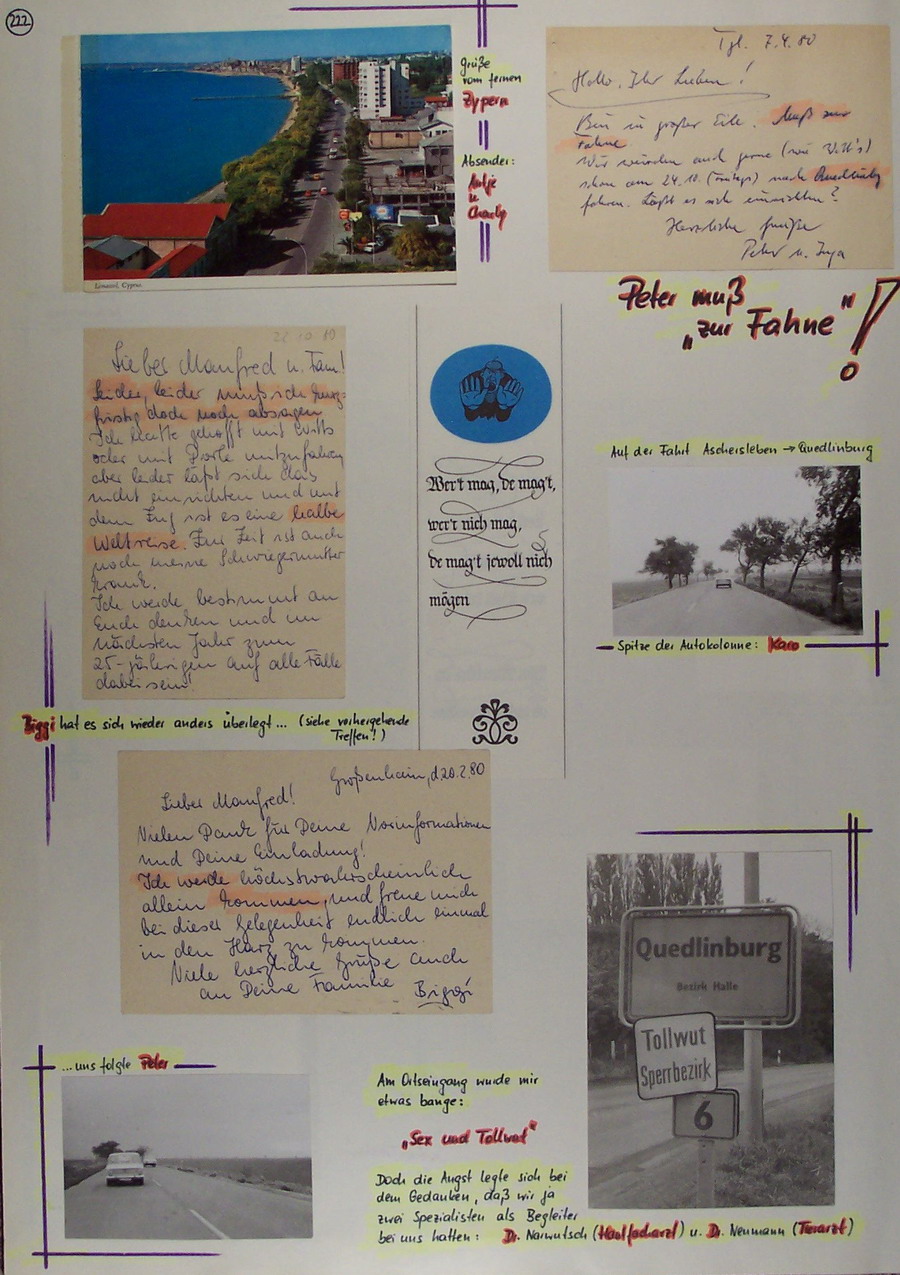 222
Limassol, Cyprus
Grüße
vom fernen
Zypern
Absender:
Antje
u.
Charly
Tgl. 7.4.80
Hallo, Ihr Lieben!
Bin in großer Eile. Muß zur
Fahne
Wir würden auch gerne (wie Witt's)
schon am 24.10. (freitags) nach Quedlinburg
fahren. Läßt es sich einrichten?
Herzliche Grüße
Peter u. Inga
Peter muß
"zur Fahne" !
22.10.80
Lieber Manfred u. Fam!
Leider, leider muß ich kurz-
fristig doch noch absagen
Ich hatte gehofft mit Witts
oder mit Dorle mitzufahren
aber leider läßt sich das
nicht einrichten und mit
dem Zug ist es eine halbe
Weltreise. Zur Zeit ist auch
noch meine Schwiegermutter
krank.
Ich werde bestimmt an
Euch denken und im
nächsten Jahr zum
25-jährigen auf alle Fälle
dabei sein!
Wer't mag, de mag't,
wer't nich mag,
de mag't jewoll nich
mögen
Auf der Fahrt Aschersleben → Quedlinburg
Spitze der Autokolonne: Karo
Biggi hat es sich wieder anders überlegt... (siehe vorhergehende
Treffen!)
Großenhain, d. 20.2.80
Lieber Manfred!
Vielen Dank für Deine Vorinformationen
und Deine Einladung!
Ich werde höchstwahrscheinlich
allein kommen, und freue mich
bei dieser Gelegenheit endlich einmal
in den Harz zu kommen.
Viele herzliche Grüße auch
an Deine Familie Biggi
Quedlinburg
Bezirk Halle
Tollwut
Sperrbezirk
6
...uns folgte Peter
Am Ortseingang wurde mir
etwas bange:
"Sex und Tollwut"
Doch die Angst legte sich bei
dem Gedanken, daß wir ja
zwei Spezialisten als Begleiter
bei uns hatten: Dr. Narwutsch (Hautfacharzt) u. Dr. Neumann (Tierarzt)